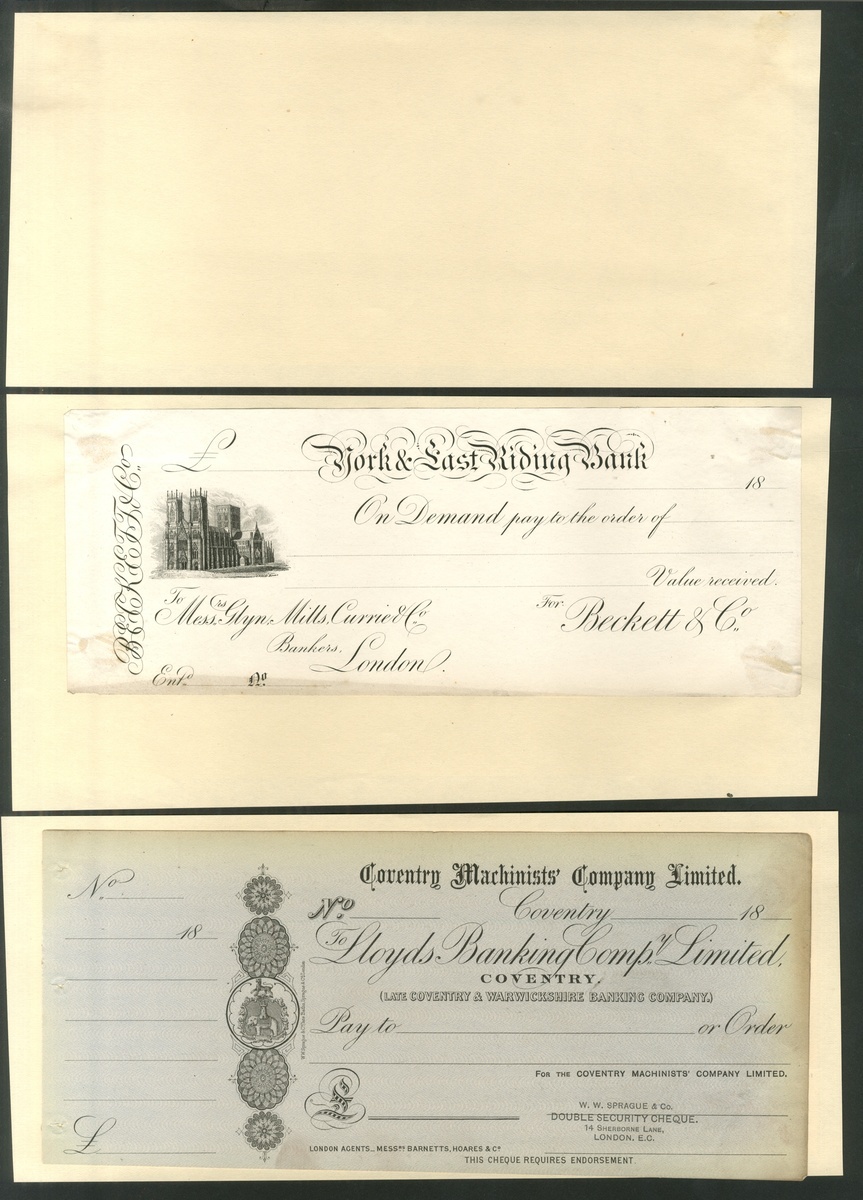 BECKETT & Co.
£
York & East Riding Bank
18
On Demand pay to the order of
Value received.
To Messrs Glyn, Mills, Currie & Co.
For Beckett & Co.
Bankers,
London.
Entd No
No
18
£
Coventry Machinists' Company Limited.
No Coventry 18
To Lloyds Banking Compy. Limited,
COVENTRY,
(LATE COVENTRY & WARWICKSHIRE BANKING COMPANY.)
Pay to or Order
FOR THE COVENTRY MACHINISTS' COMPANY LIMITED.
£
W. W. SPRAGUE & Co.
DOUBLE SECURITY CHEQUE.
14 SHERBORNE LANE,
LONDON. E.C.
LONDON AGENTS_ MESSRS BARNETTS, HOARES & Co
THIS CHEQUE REQUIRES ENDORSEMENT.